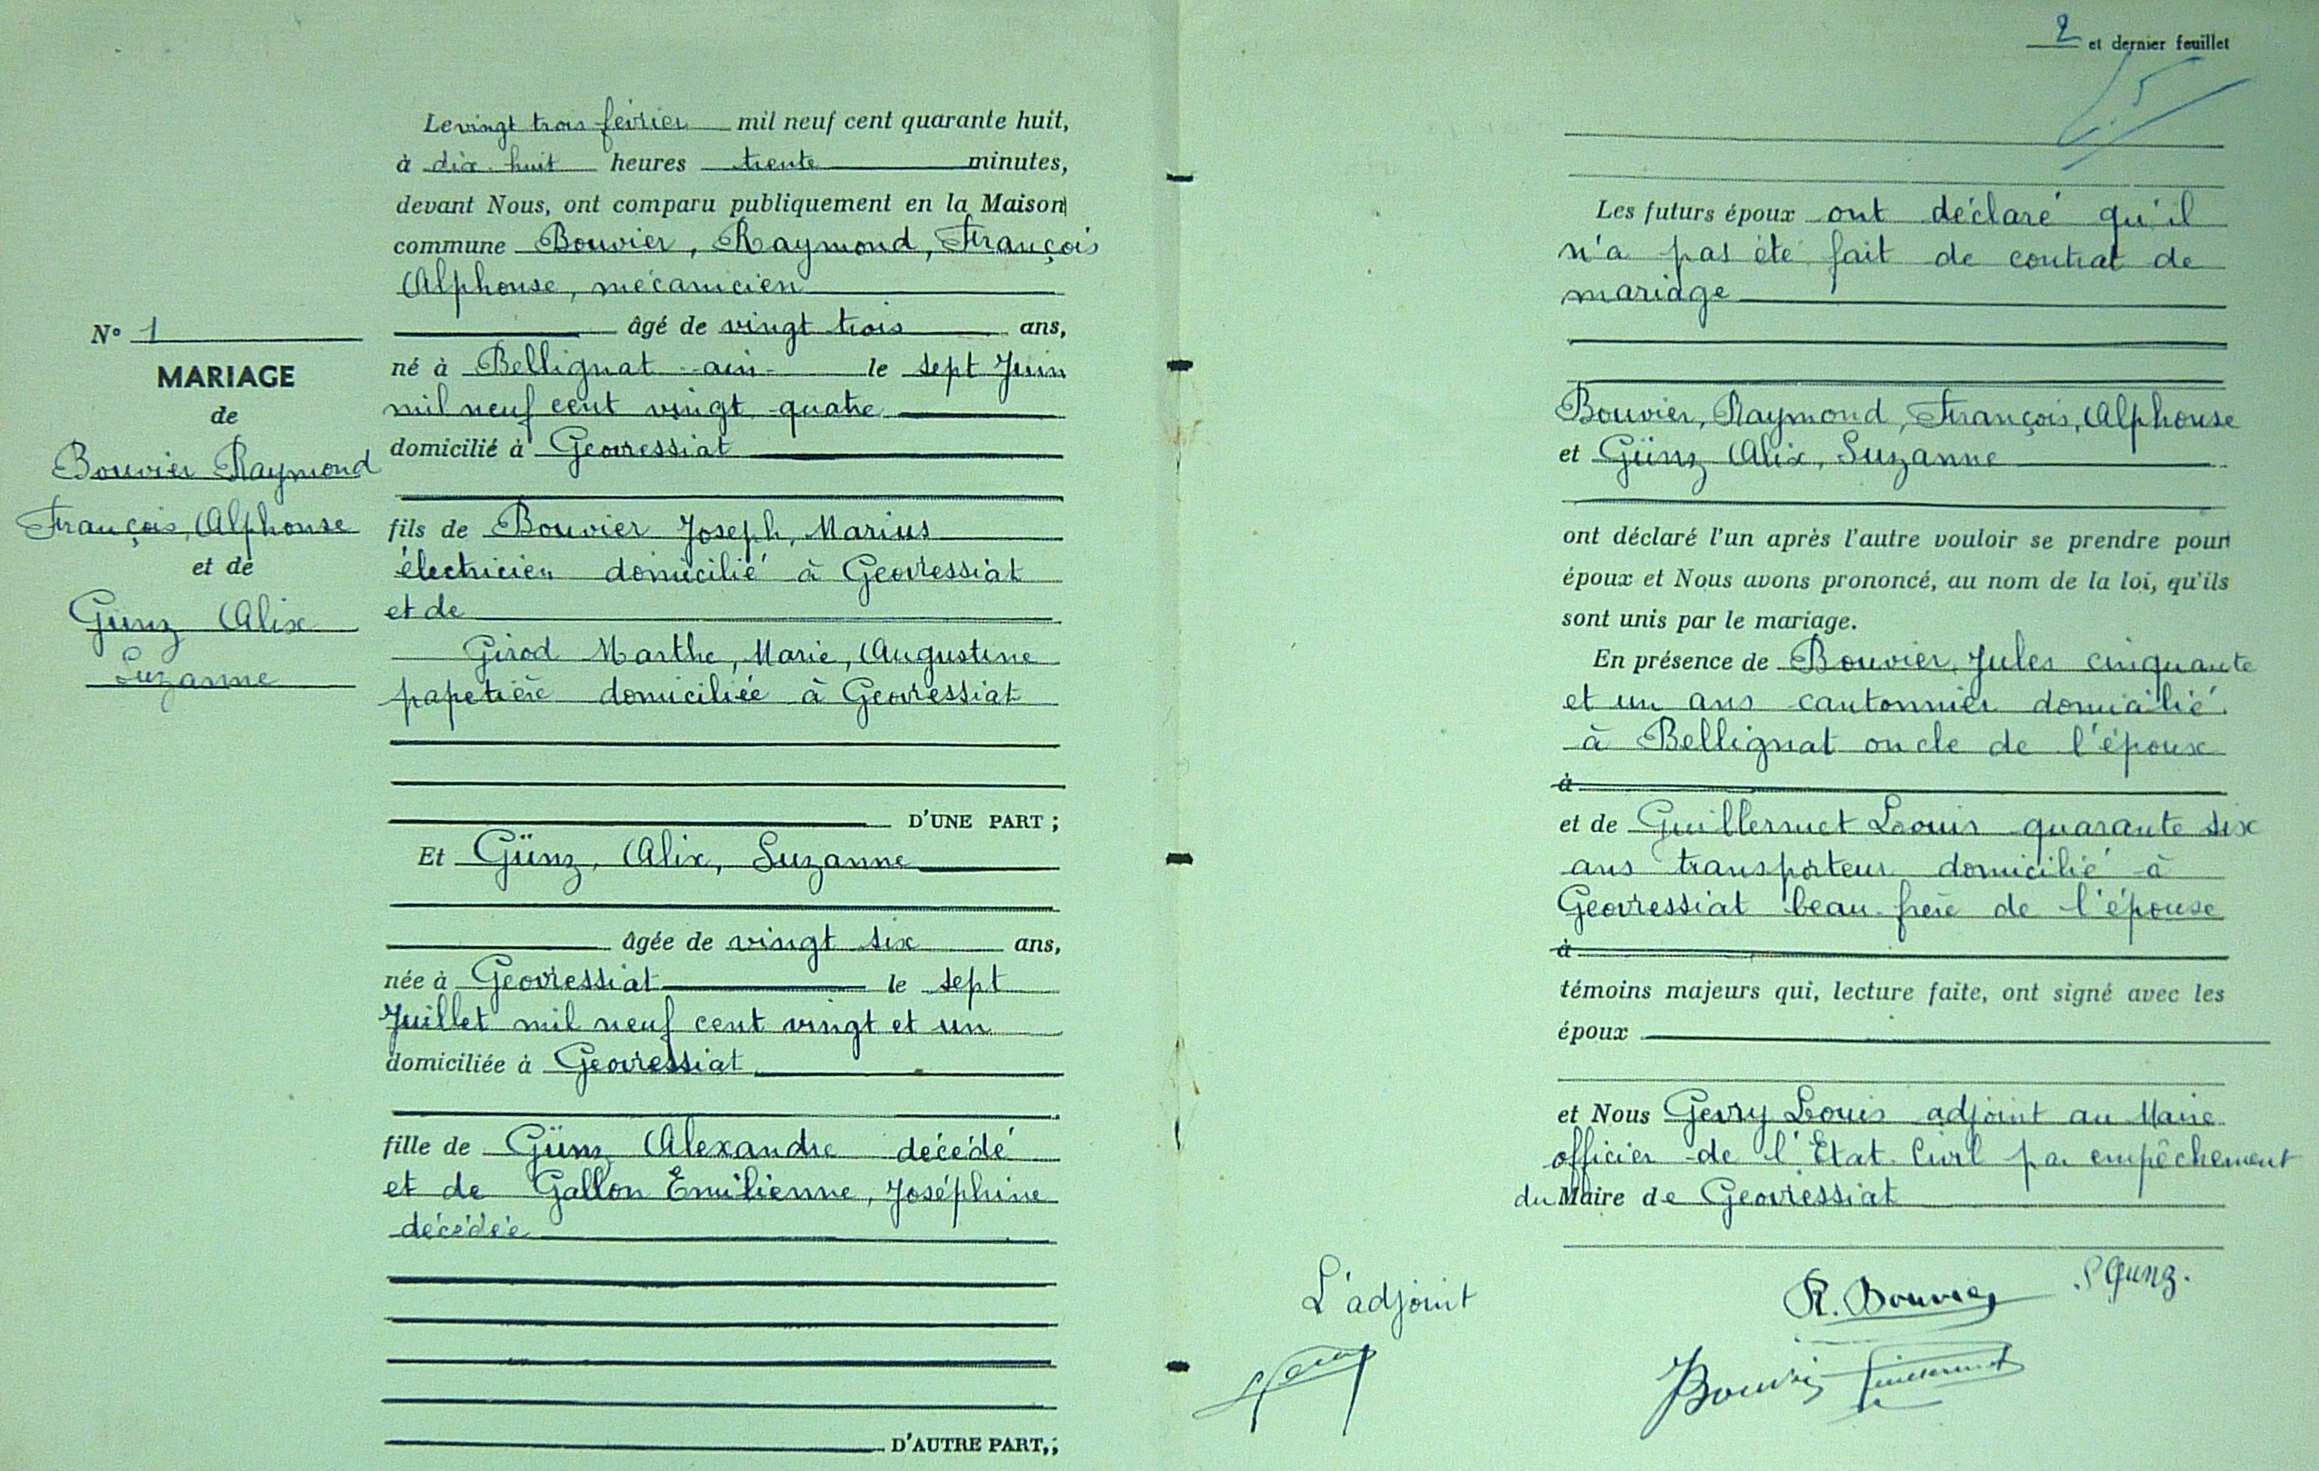 N° 1
MARIAGE
de
Bouvier Raymond
François, Alphonse
et de
Günz Alix
Suzanne
Le vingt trois février mil neuf cent quarante huit,
à dix huit heures trente minutes,
devant Nous, ont comparu publiquement en la Maison
commune Bouvier, Raymond, François
Alphonse, mécanicien
âgé de vingt trois ans,
né à Bellignat -ain- le sept Juin
mil neuf cent vingt quatre
domicilié à Geovressiat
fils de Bouvier Joseph, Marius
électricien domicilié à Geovressiat
et de
Girod Marthe, Marie, Augustine
papetière domiciliée à Geovressiat
D'UNE PART ;
Et Günz, Alix, Suzanne
âgée de vingt six ans,
née à Geovressiat le sept
Juillet mil neuf cent vingt et un
domiciliée à Geovressiat
fille de Günz Alexandre décédé
et de Gallon Emilienne, Joséphine
décédée
D'AUTRE PART,;
2 et dernier feuillet
Les futurs époux ont déclaré qu'il
n'a pas été fait de contrat de
mariage
Bouvier, Raymond, François, Alphonse
et Günz Alix, Suzanne
ont déclaré l'un après l'autre vouloir se prendre pour
époux et Nous avons prononcé, au nom de la loi, qu'ils
sont unis par le mariage.
En présence de Bouvier, Jules cinquante
et un ans cantonnier domicilié
à Bellignat oncle de l'époux
à
et de Guillermet Louis quarante six
ans transporteur domicilié à
Geovressiat beau-frère de l'épouse
à
témoins majeurs qui, lecture faite, ont signé avec les
époux
et Nous Gevry Louis adjoint au Maire
officier de l'Etat Civil par empêchement
du Maire de Geovressiat
L'adjoint
R. Bouvier
S Gunz.
Bouvier
Guillermet